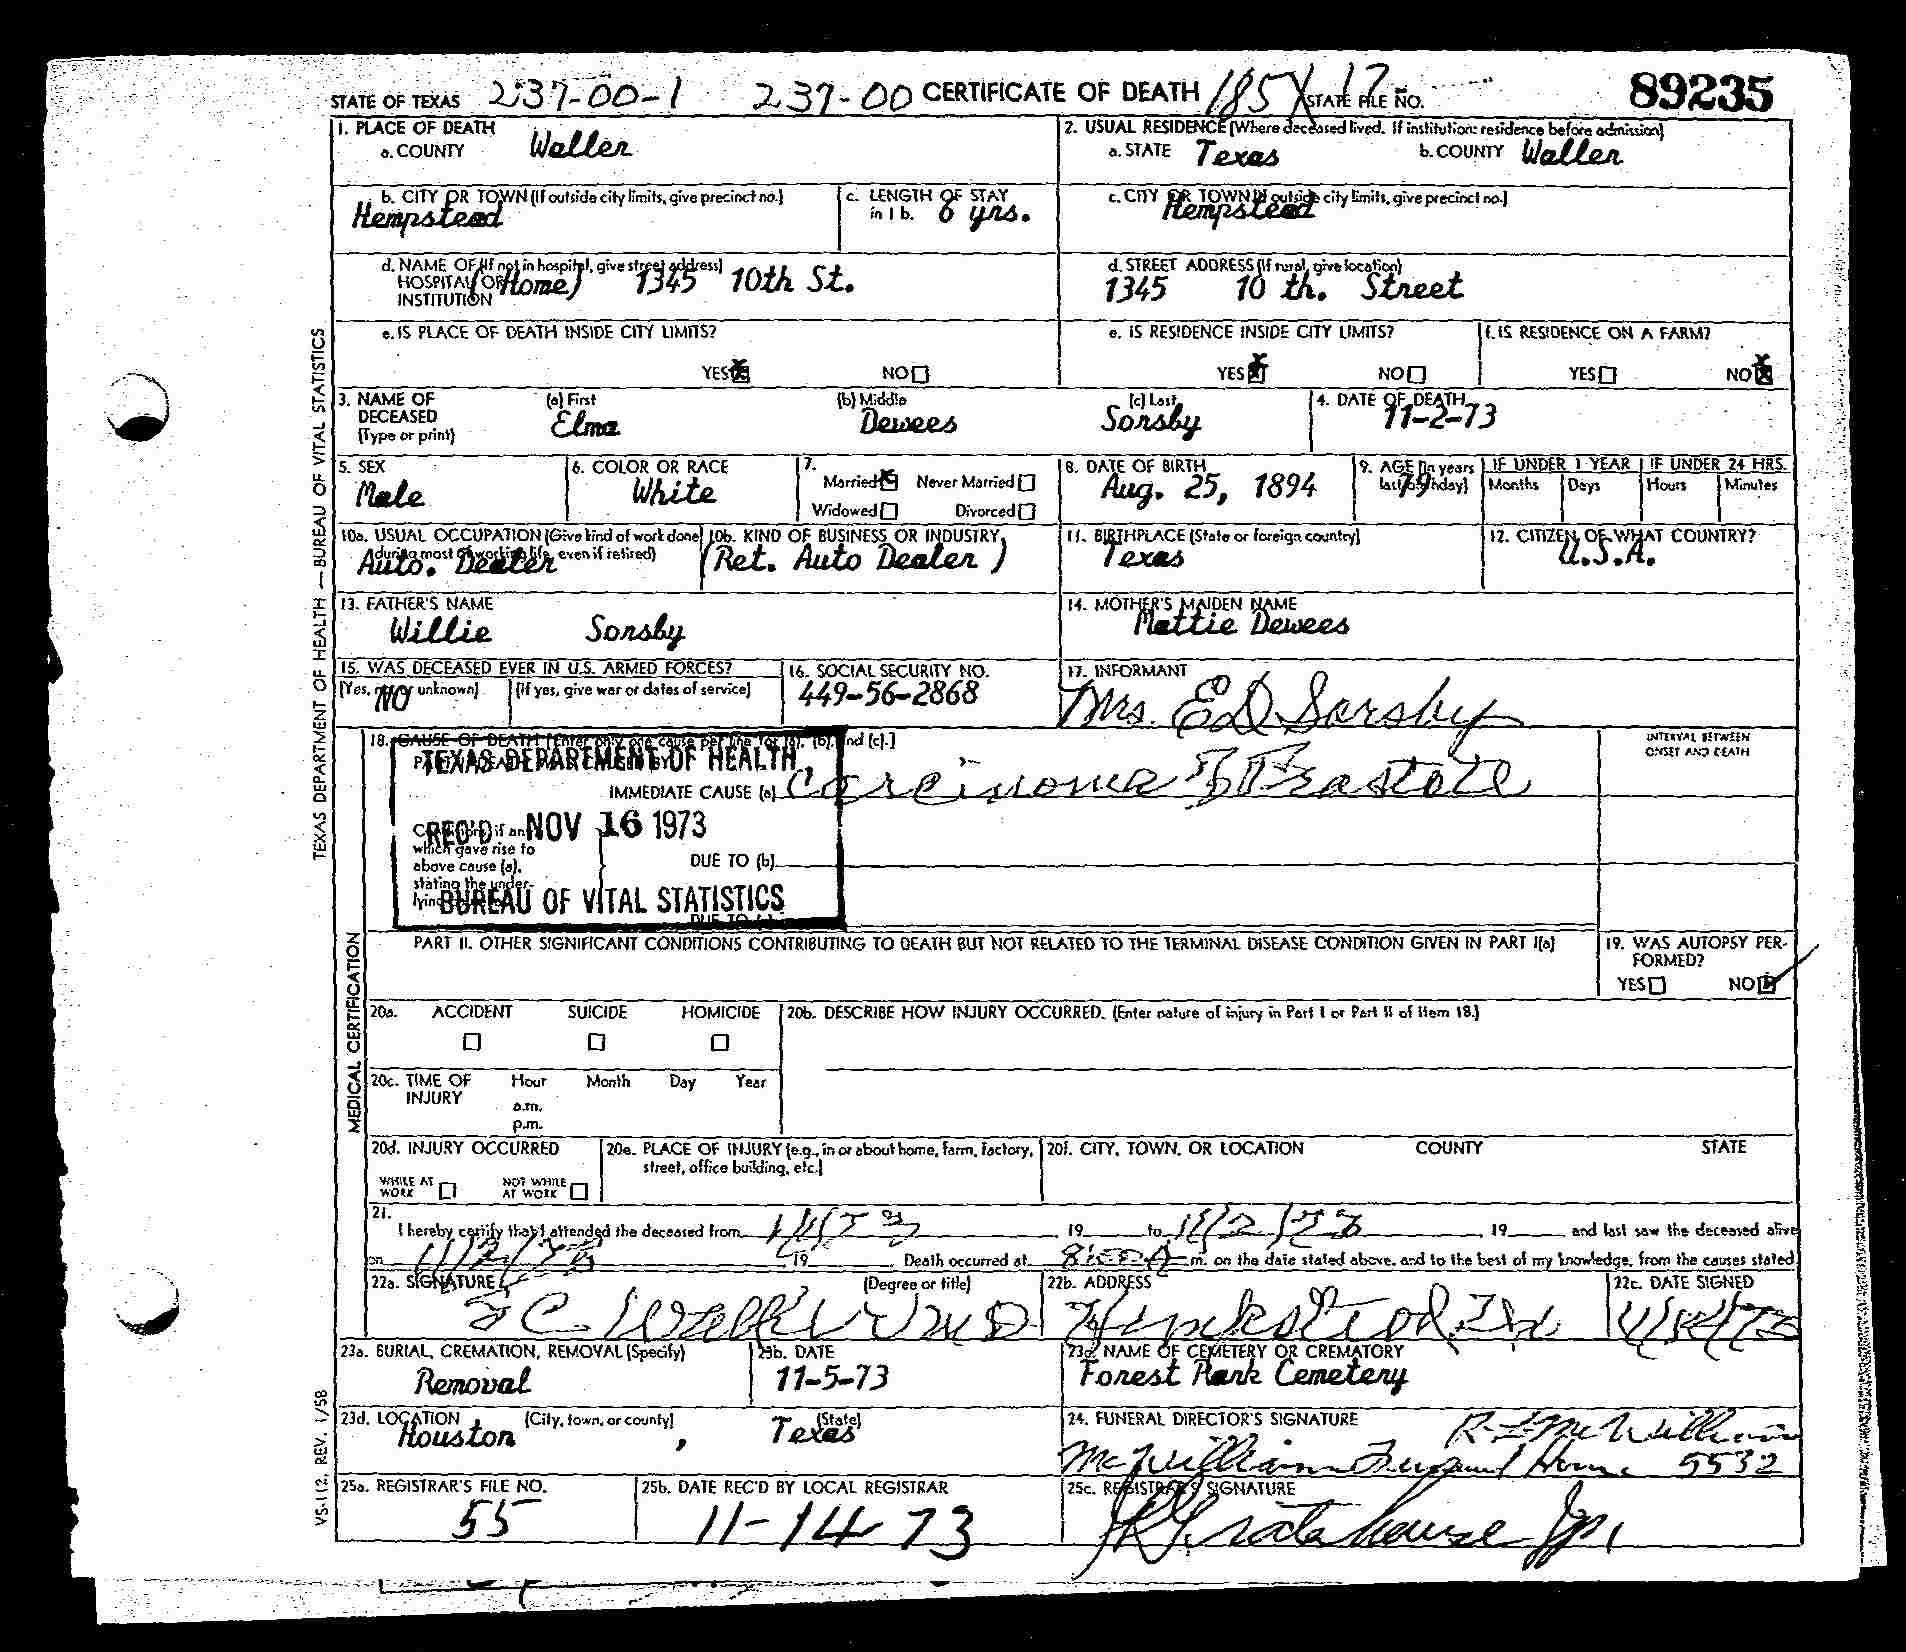 STATE OF TEXAS 237-00-1 237-00 CERTIFICATE OF DEATH 185X 17 STATE FILE NO. 89235
1. PLACE OF DEATH
a. COUNTY Waller
2. USUAL RESIDENCE (Where deceased lived. If institution: residence before admission)
a. STATE Texas b. COUNTY Waller
b. CITY OR TOWN (If outside city limits, give precinct no.)
Hempstead
c. LENGTH OF STAY
in 1 b. 6 yrs.
c. CITY OR TOWN (If outside city limits, give precinct no.)
Hempstead
d. NAME OF (If not in hospital, give street address)
HOSPITAL OR
INSTITUTION
(Home) 1345 10th St.
d. STREET ADDRESS (If rural, give location)
1345 10 th. Street
e. IS PLACE OF DEATH INSIDE CITY LIMITS?
YES X NO
e. IS RESIDENCE INSIDE CITY LIMITS?
YES X NO
f. IS RESIDENCE ON A FARM?
YES NO X
3. NAME OF
DECEASED
(Type or print)
(a) First
Elma
(b) Middle
Dewees
(c) Last
Sorsby
4. DATE OF DEATH
11-2-73
5. SEX
Male
6. COLOR OR RACE
White
7.
Married X Never Married
Widowed Divorced
8. DATE OF BIRTH
Aug. 25, 1894
9. AGE (In years
last birthday)
79
IF UNDER 1 YEAR
Months Days
IF UNDER 24 HRS.
Hours Minutes
10a. USUAL OCCUPATION (Give kind of work done
during most of working life, even if retired)
Auto. Dealer
10b. KIND OF BUSINESS OR INDUSTRY
(Ret. Auto Dealer)
11. BIRTHPLACE (State or foreign country)
Texas
12. CITIZEN OF WHAT COUNTRY?
U.S.A.
13. FATHER'S NAME
Willie Sorsby
14. MOTHER'S MAIDEN NAME
Mattie Dewees
15. WAS DECEASED EVER IN U.S. ARMED FORCES?
(Yes, no, or unknown) (If yes, give war or dates of service)
NO
16. SOCIAL SECURITY NO.
449-56-2868
17. INFORMANT
Mrs. E D Sorsby
18. CAUSE OF DEATH [Enter only one cause per line for (a), (b), and (c).]
TEXAS DEPARTMENT OF HEALTH
IMMEDIATE CAUSE (a) Carcinoma of Prostate
INTERVAL BETWEEN
ONSET AND DEATH
REC'D NOV 16 1973
Conditions, if any,
which gave rise to
above cause (a),
stating the under-
lying
DUE TO (b)
BUREAU OF VITAL STATISTICS
DUE TO (c)
PART II. OTHER SIGNIFICANT CONDITIONS CONTRIBUTING TO DEATH BUT NOT RELATED TO THE TERMINAL DISEASE CONDITION GIVEN IN PART I(a)
19. WAS AUTOPSY PER-
FORMED?
YES NO
20a. ACCIDENT SUICIDE HOMICIDE
20b. DESCRIBE HOW INJURY OCCURRED. (Enter nature of injury in Part I or Part II of Item 18.)
20c. TIME OF
INJURY
Hour Month Day Year
a.m.
p.m.
20d. INJURY OCCURRED
WHILE AT
WORK
NOT WHILE
AT WORK
20e. PLACE OF INJURY (e.g., in or about home, farm, factory,
street, office building, etc.)
20f. CITY, TOWN, OR LOCATION COUNTY STATE
21.
I hereby certify that I attended the deceased from 19 to 11/2/73 19 and last saw the deceased alive
on 11/2/73 19 Death occurred at 8:00 A m. on the date stated above, and to the best of my knowledge, from the causes stated.
22a. SIGNATURE (Degree or title)
M D
22b. ADDRESS
Hempstead, Tex
22c. DATE SIGNED
23a. BURIAL, CREMATION, REMOVAL (Specify)
Removal
23b. DATE
11-5-73
23c. NAME OF CEMETERY OR CREMATORY
Forest Park Cemetery
23d. LOCATION (City, town, or county) (State)
Houston, Texas
24. FUNERAL DIRECTOR'S SIGNATURE
McWilliams Funeral Home 5532
25a. REGISTRAR'S FILE NO.
55
25b. DATE REC'D BY LOCAL REGISTRAR
11-14-73
25c. REGISTRAR'S SIGNATURE
TEXAS DEPARTMENT OF HEALTH — BUREAU OF VITAL STATISTICS
MEDICAL CERTIFICATION
VS-112, REV. 1/58